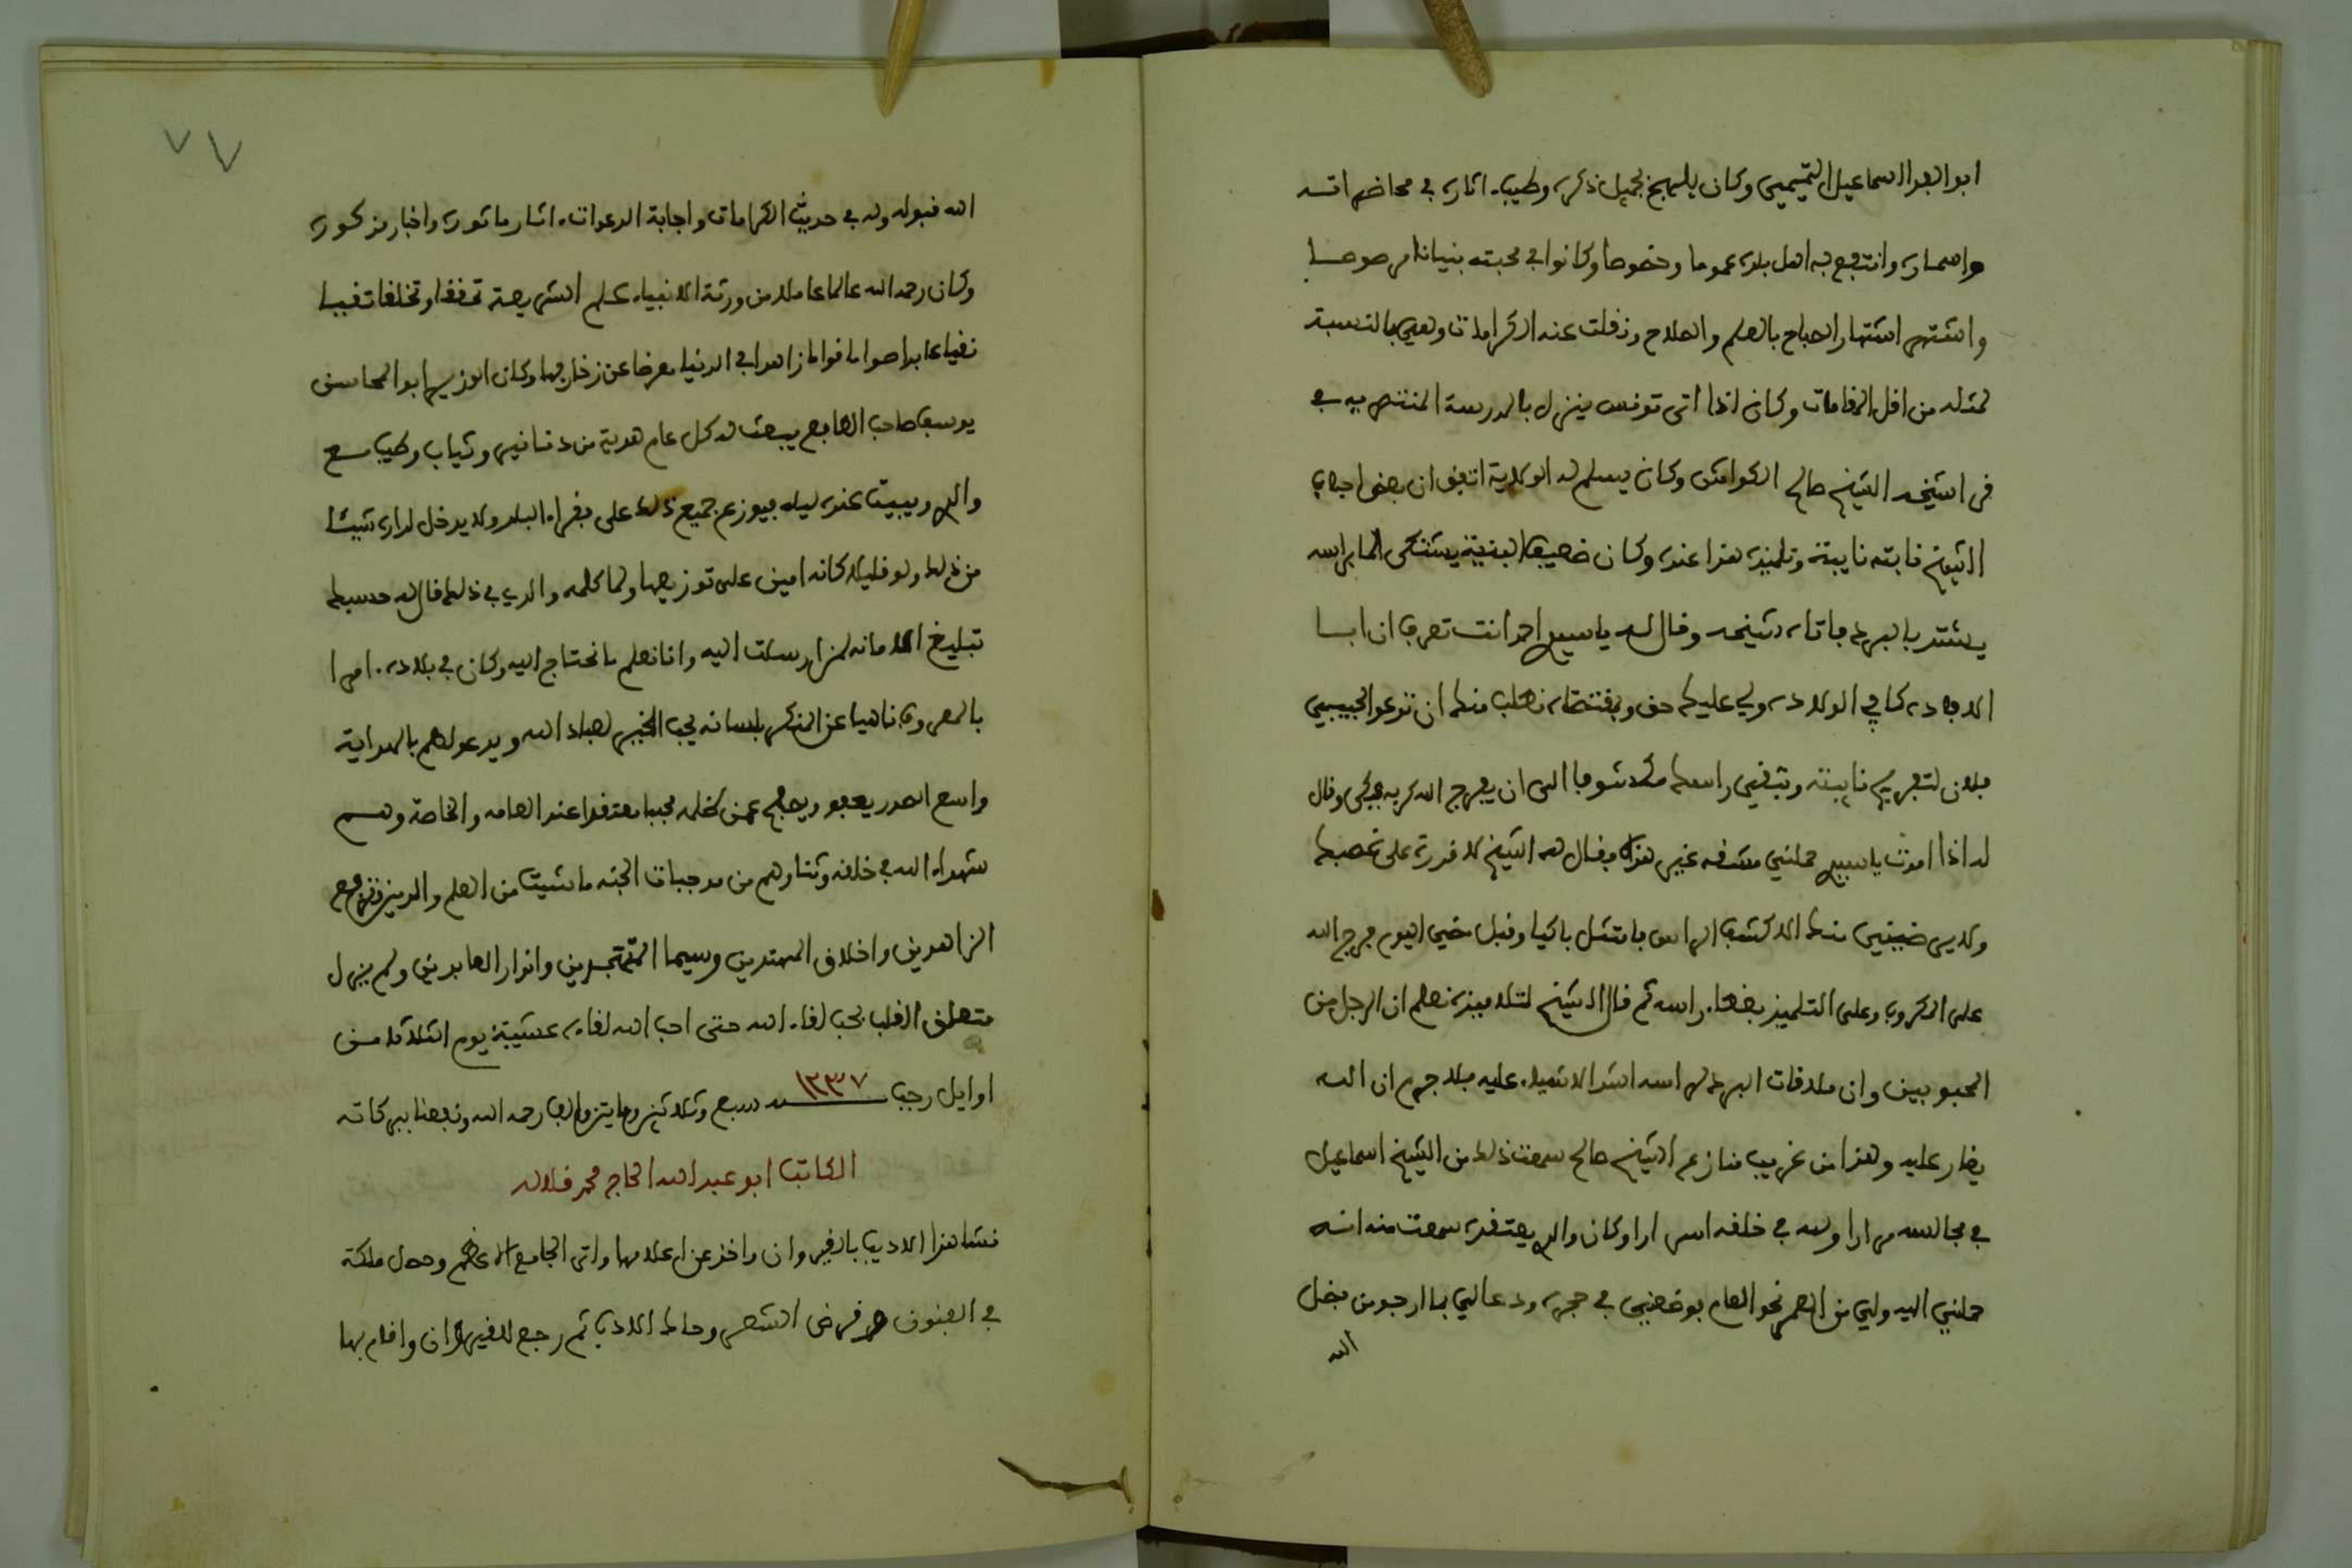 ابو الفدا اسماعيل التميمي وكان يلهج بجميل ذكره وطيب اثاره في محاضراته
واسماره وانتفع به اهل بلده عموما وخصوصا وكانوا في محبته بنيانا مرصوصا
واشتهر اشتهار الصباح بالعلم والصلاح ونقلت عنه الكرامات وهي بالنسبة
لمثله من اقل المقامات وكان اذا اتى تونس ينزل بالمدرسة المنتصريه في
قرا شيخه الشيخ صالح الكواش وكان يسلم له الولاية اتفق ان بعض احباب
الشيخ نابته نايبة وتلميذه هذا عنده وكان ضعيف البنية يشتكي الما براسه
يشتد بالبرد فاتاه شيخه وقال له يا سيدي احمد انت تعرف ان ابا
الافاده كابي الولاده ولي عليك حق وبمقتضاه نطلب منك ان تدعو لحبيبي
فلان لتفريج نايبته وتبقي راسك مكشوفا الى ان يفرج الله كربه فبكى وقال
له اذا امرت يا سيدي حملني مشقه غير هذه فقال له الشيخ لا قدرة على غصبك
ولا يرضيني منك الا كشف الراس فامتثل باكيا وقبل مضي اليوم فرج الله
على المكروب وعلى التلميذ بغطا راسه ثم قال الشيخ لتلاميذه نعلم ان الرجل من
المحبوبين وان ملاقات البرد لراسه اشد الاشياء عليه فلا جرم ان الله
يغار عليه وهذا من غريب منازع الشيخ صالح سمعت ذلك من الشيخ اسماعيل
في مجالسه مرارا ولله في خلقه اسرارا وكان والدي يعتقده سمعت منه انه
حملني اليه ولي من العمر نحو العام فوضعني في حجره ودعا لي بما ارجو من فضل
الله
٧٧
الله قبوله وله في حديث الكرامات واجابة الدعوات اثار ماثوره واخبار مذكوره
وكان رحمه الله عالما عاملا من ورثة الانبياء علم الشريعة تحققا وتخلقا تقيا
نقيا عابدا صواما قواما زاهدا في الدنيا معرضا عن زخارفها وكان الوزير ابو المحاسن
يوسف صاحب الطابع يبعث له كل عام هدية من دنانير وثياب وطيب مع
والدي ويبيت عنده ليله فيوزع جميع ذلك على فقراء البلد ولا يدخل لداره شيئا
من ذلك ولو قليلا كانه امين على توزيعها ولما كلمه والدي في ذلك قال له حسبك
تبليغ الامانه لمن ارسلت اليه وانا نعلم ما نحتاج اليه وكان في بلاده امرا
بالمعروف ناهيا عن المنكر بلسانه يحب الخير لعباد الله ويدعو لهم بالهداية
واسع الصدر يعفو ويصفح عمن ظلمه محببا معتقدا عند العامه والخاصة وهم
شهداء الله في خلقه وثناوهم من موجبات الجنه ما شيت من العلم والدين وتزهد
الزاهدين واخلاق المهتدين وسيما المتهجدين وانوار العابدين ولم يزل
متعلق القلب بحب لقاء الله حتى احب الله لقاءه عشية يوم الثلاثا من
اوايل رجب سنة ١٢٣٧ سبع وثلاثين ومايتين والف رحمه الله ونفعنا ببركاته
الكاتب ابو عبد الله الحاج محمد قلاله
نشا هذا الاديب بالقيروان واخذ عن اعلامها واتى الجامع الاعظم وحصل ملكة
في الفنون وقرض الشعر وحاك الادب ثم رجع للقيروان واقام بها